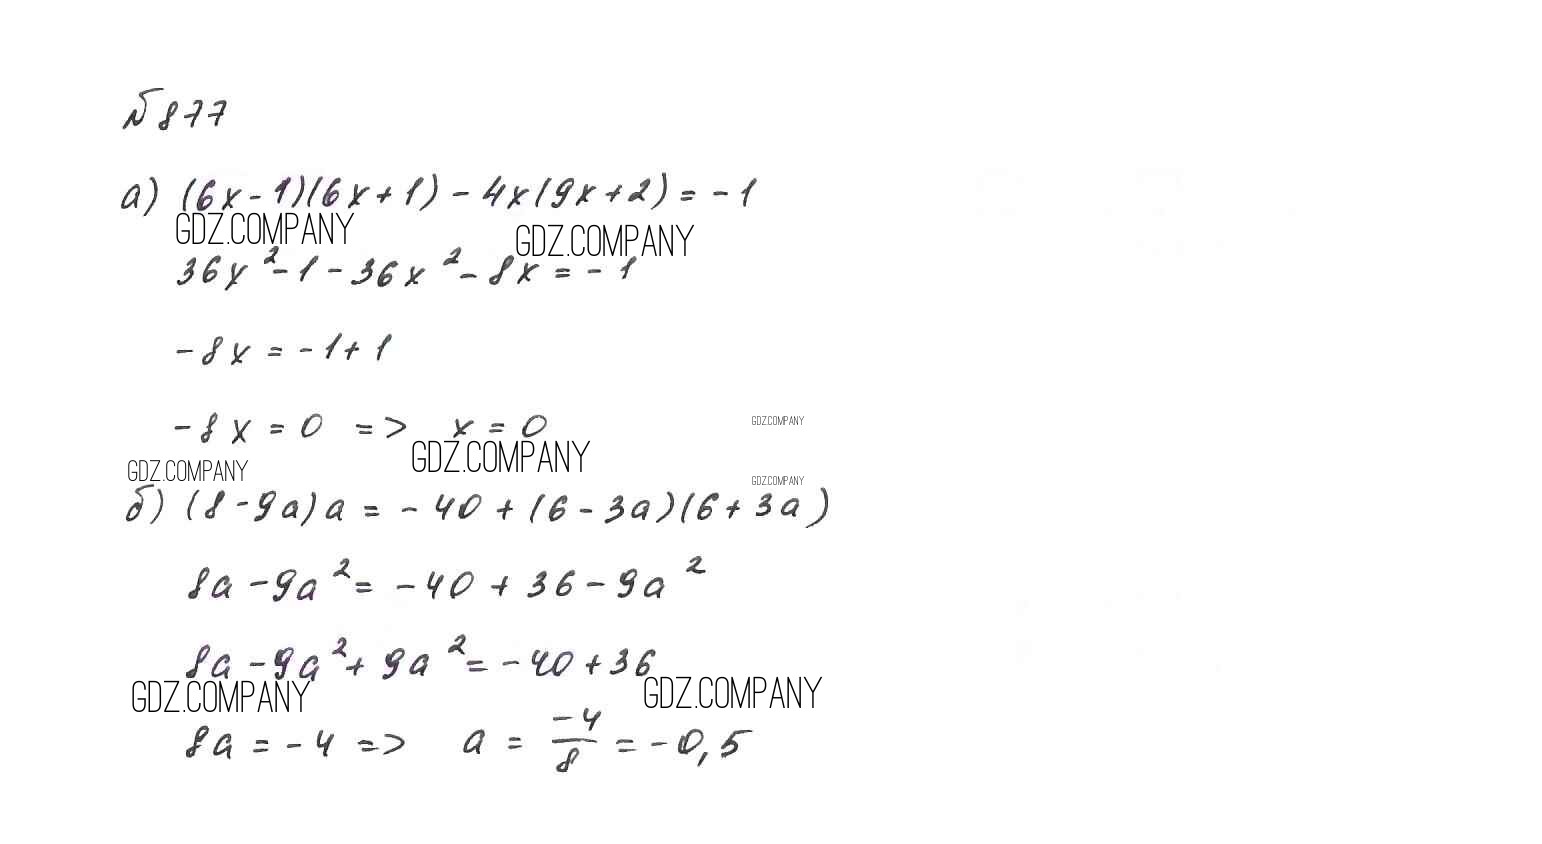 №877
а) (6x-1)(6x+1) - 4x(9x+2) = -1
GDZ.COMPANY GDZ.COMPANY
36x² - 1 - 36x² - 8x = -1
-8x = -1+1
-8x = 0 => x = 0
GDZ.COMPANY
GDZ.COMPANY GDZ.COMPANY
GDZ.COMPANY
б) (8-9a)a = -40 + (6-3a)(6+3a)
8a - 9a² = -40 + 36 - 9a²
8a - 9a² + 9a² = -40 + 36
GDZ.COMPANY GDZ.COMPANY
8a = -4 => a = -4/8 = -0,5